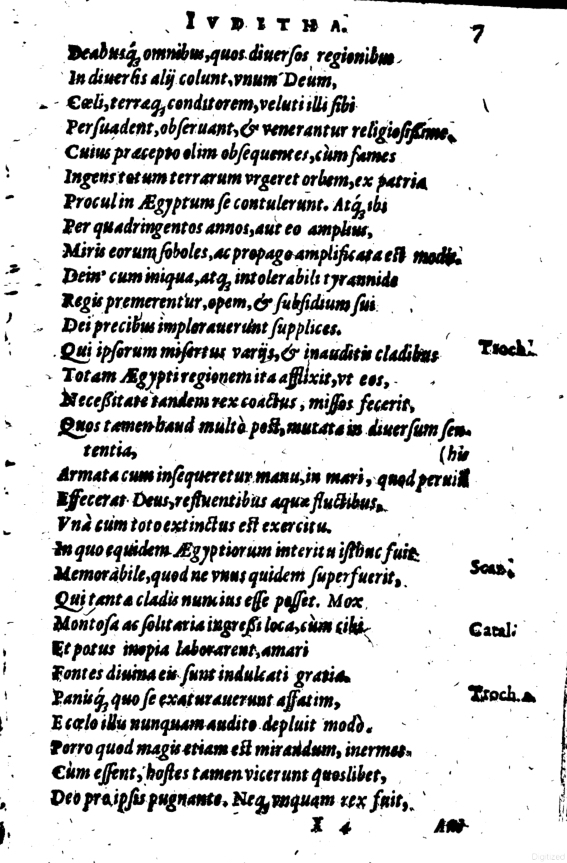 IVDITHA. 7
Deabusq́; omnibus, quos diuersos regionibus
In diuersis alij colunt, vnum Deum,
Cœli, terraeq; conditorem, veluti illi sibi
Persuadent, obseruant, & venerantur religiosissime.
Cuius præcepto olim obsequentes, cùm fames
Ingens totum terrarum vrgeret orbem, ex patria
Procul in Ægyptum se contulerunt. Atq́; ibi
Per quadringentos annos, aut eo amplius,
Miris eorum soboles, ac propago amplificata est modis.
Dein' cum iniqua, atq; intolerabili tyrannide
Regis premerentur, opem, & subsidium sui
Dei precibus implorauerunt supplices.
Qui ipsorum misertus varijs, & inauditis cladibus Troch.
Totam Ægypti regionem ita afflixit, vt eos,
Necessitate tandem rex coactus, missos fecerit,
Quos tamen haud multò post, mutata in diuersum sen-
tentia, (his
Armata cum insequeretur manu, in mari, quod peruium
Effecerat Deus, refluentibus aquæ fluctibus,
Vnà cum toto extinctus est exercitu.
In quo equidem Ægyptiorum interitu isthuc fuit
Memorabile, quod ne vnus quidem superfuerit, Scan.
Qui tantæ cladis nuncius esse posset. Mox
Montosa ac solitaria ingressi loca, cùm cibi Catal.
Et potus inopia laborarent, amari
Fontes diuina eis sunt indulcati gratia.
Panisq́; quo se exaturauerunt affatim, Troch.
E cœlo illis nunquam audito depluit modo.
Porro quod magis etiam est mirandum, inermes
Cùm essent, hostes tamen vicerunt quoslibet,
Deo pro ipsis pugnante. Neq; vnquam rex fuit,
X 4 Aut
Digitized